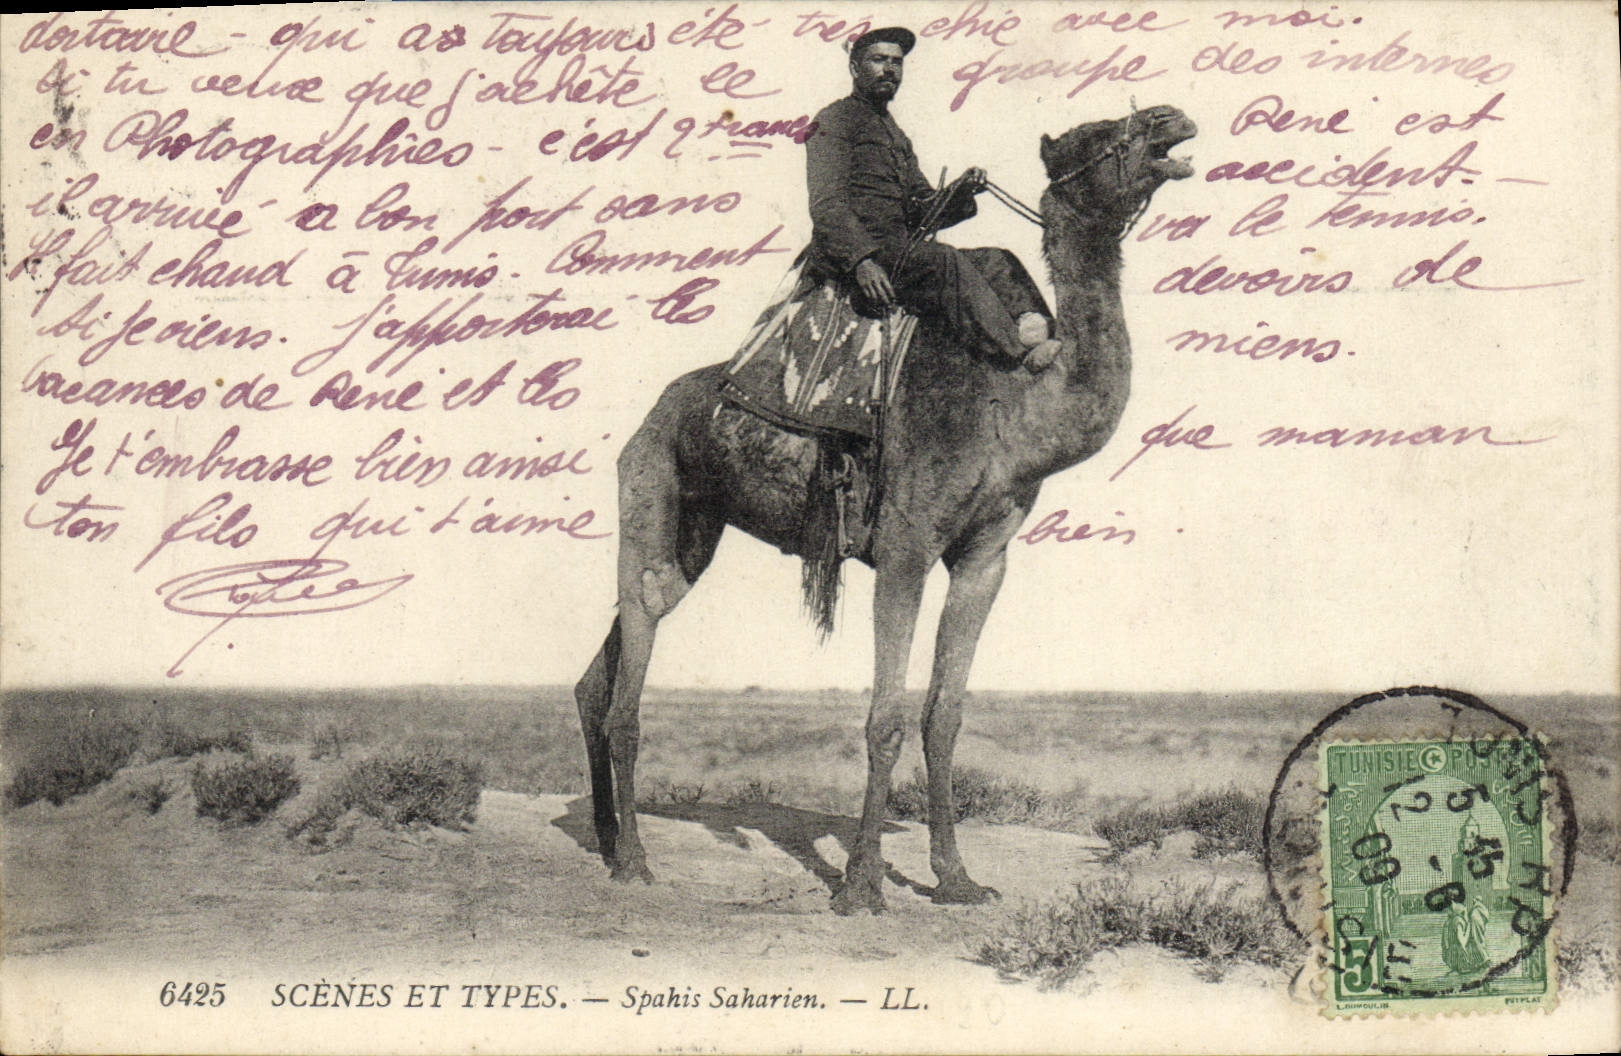 dortoire - qui a toujours été très chic avec moi.
Si tu veux que j'achète le groupe des internes
en Photographies - c'est 2 francs René est
il arrivé a bon port sans accident. -
Il fait chaud à Tunis. Comment va le tennis.
Si je viens. J'apporterai les devoirs de
vacances de René et les miens.
Je t'embrasse bien ainsi que maman
ton fils qui t'aime bien.
TUNISIE POSTES
TUNIS R.P
5 45
12 - 8
09
5
L. DUMOULIN.
PUYPLAT
6425 SCÈNES ET TYPES. — Spahis Saharien. — LL.